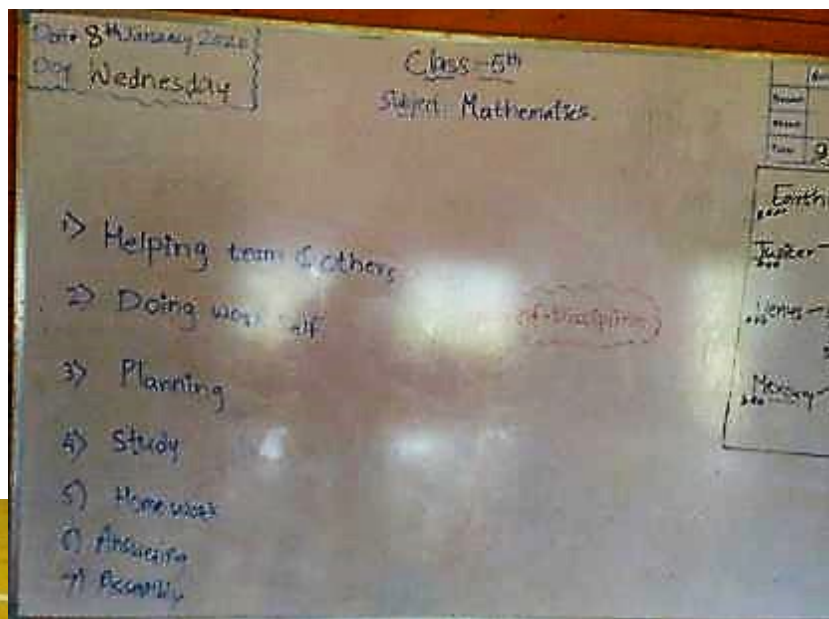 Date 8th January 2020
Day Wednesday
Class-5th
Subject: Mathematics.
1) Helping team & others
2) Doing work self
3) Planning
4) Study
5) Home work
6) Answering
7) Assembly
of Discipline
Total 9
Earth
Jupiter
Venus
Mercury